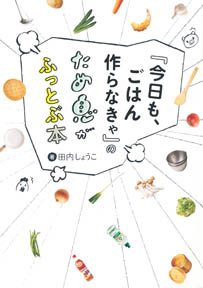 『今日も、
ごはん
作らなきゃ』の
ため息が
ふっとぶ本
著 田内しょうこ